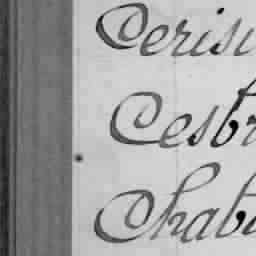 Cerisi
Cesbr
Chabi